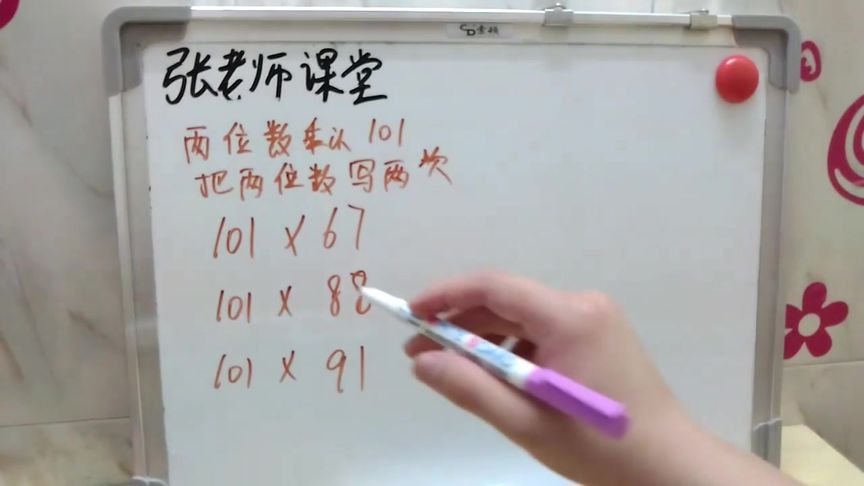 张老师课堂
两位数乘以101
把两位数写两次
101 x 67
101 x 88
101 x 91